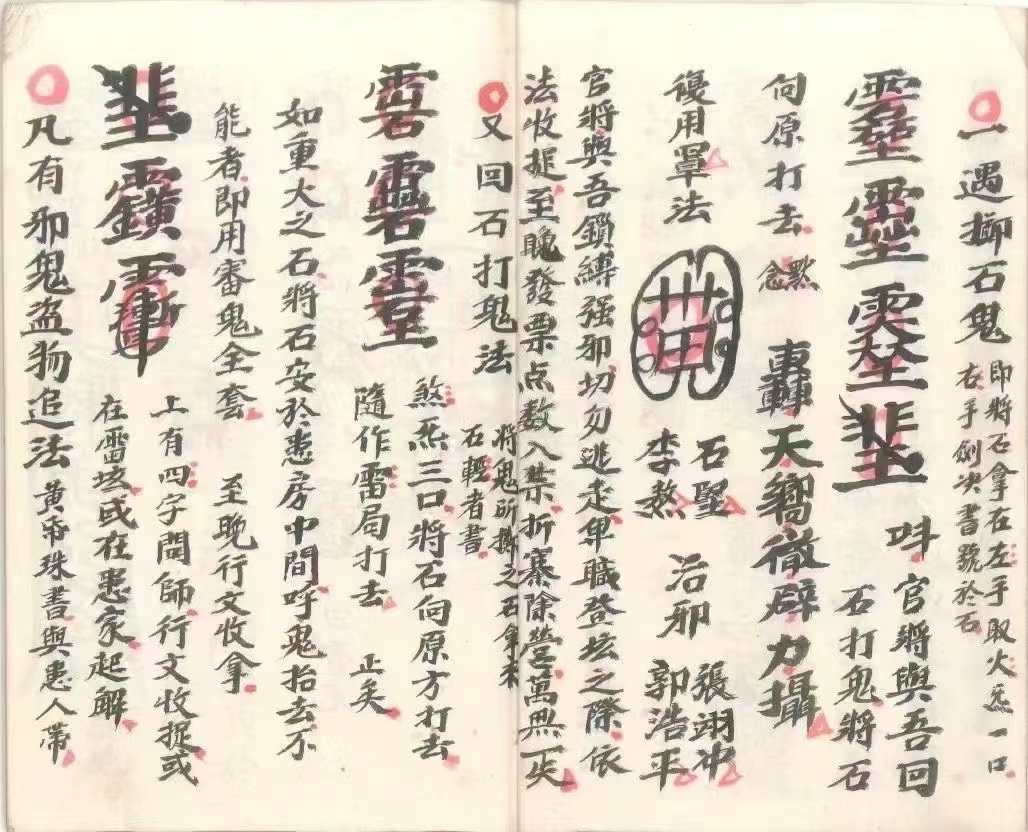 一遇掷石鬼
即將石拿在左手取火炁一口
右手劍决書號於石
吽
官將與吾回
石打鬼將石
向原打去
默念
轟轟天嚮徹辟力攝
復用罩法
石堅
李熬
治邪
張翊冲
郭浩平
官將與吾鎖縛强邪切勿逃走卑職登坛之際依
法收捉至晚發票点数入禁折寨除營萬
又回石打鬼法
將鬼所掷之石拿來
石輕者書
煞炁三口將石向原方打去
隨作雷局打去
正矣
如重大之石將石安於患房中間呼鬼抬去不
能者即用審鬼全套
至晚行文收拿
上有四字問師行文收捉或
在雷坛或在患家起解
凡有邪鬼盗物追法
黄帋珠書與患人帶